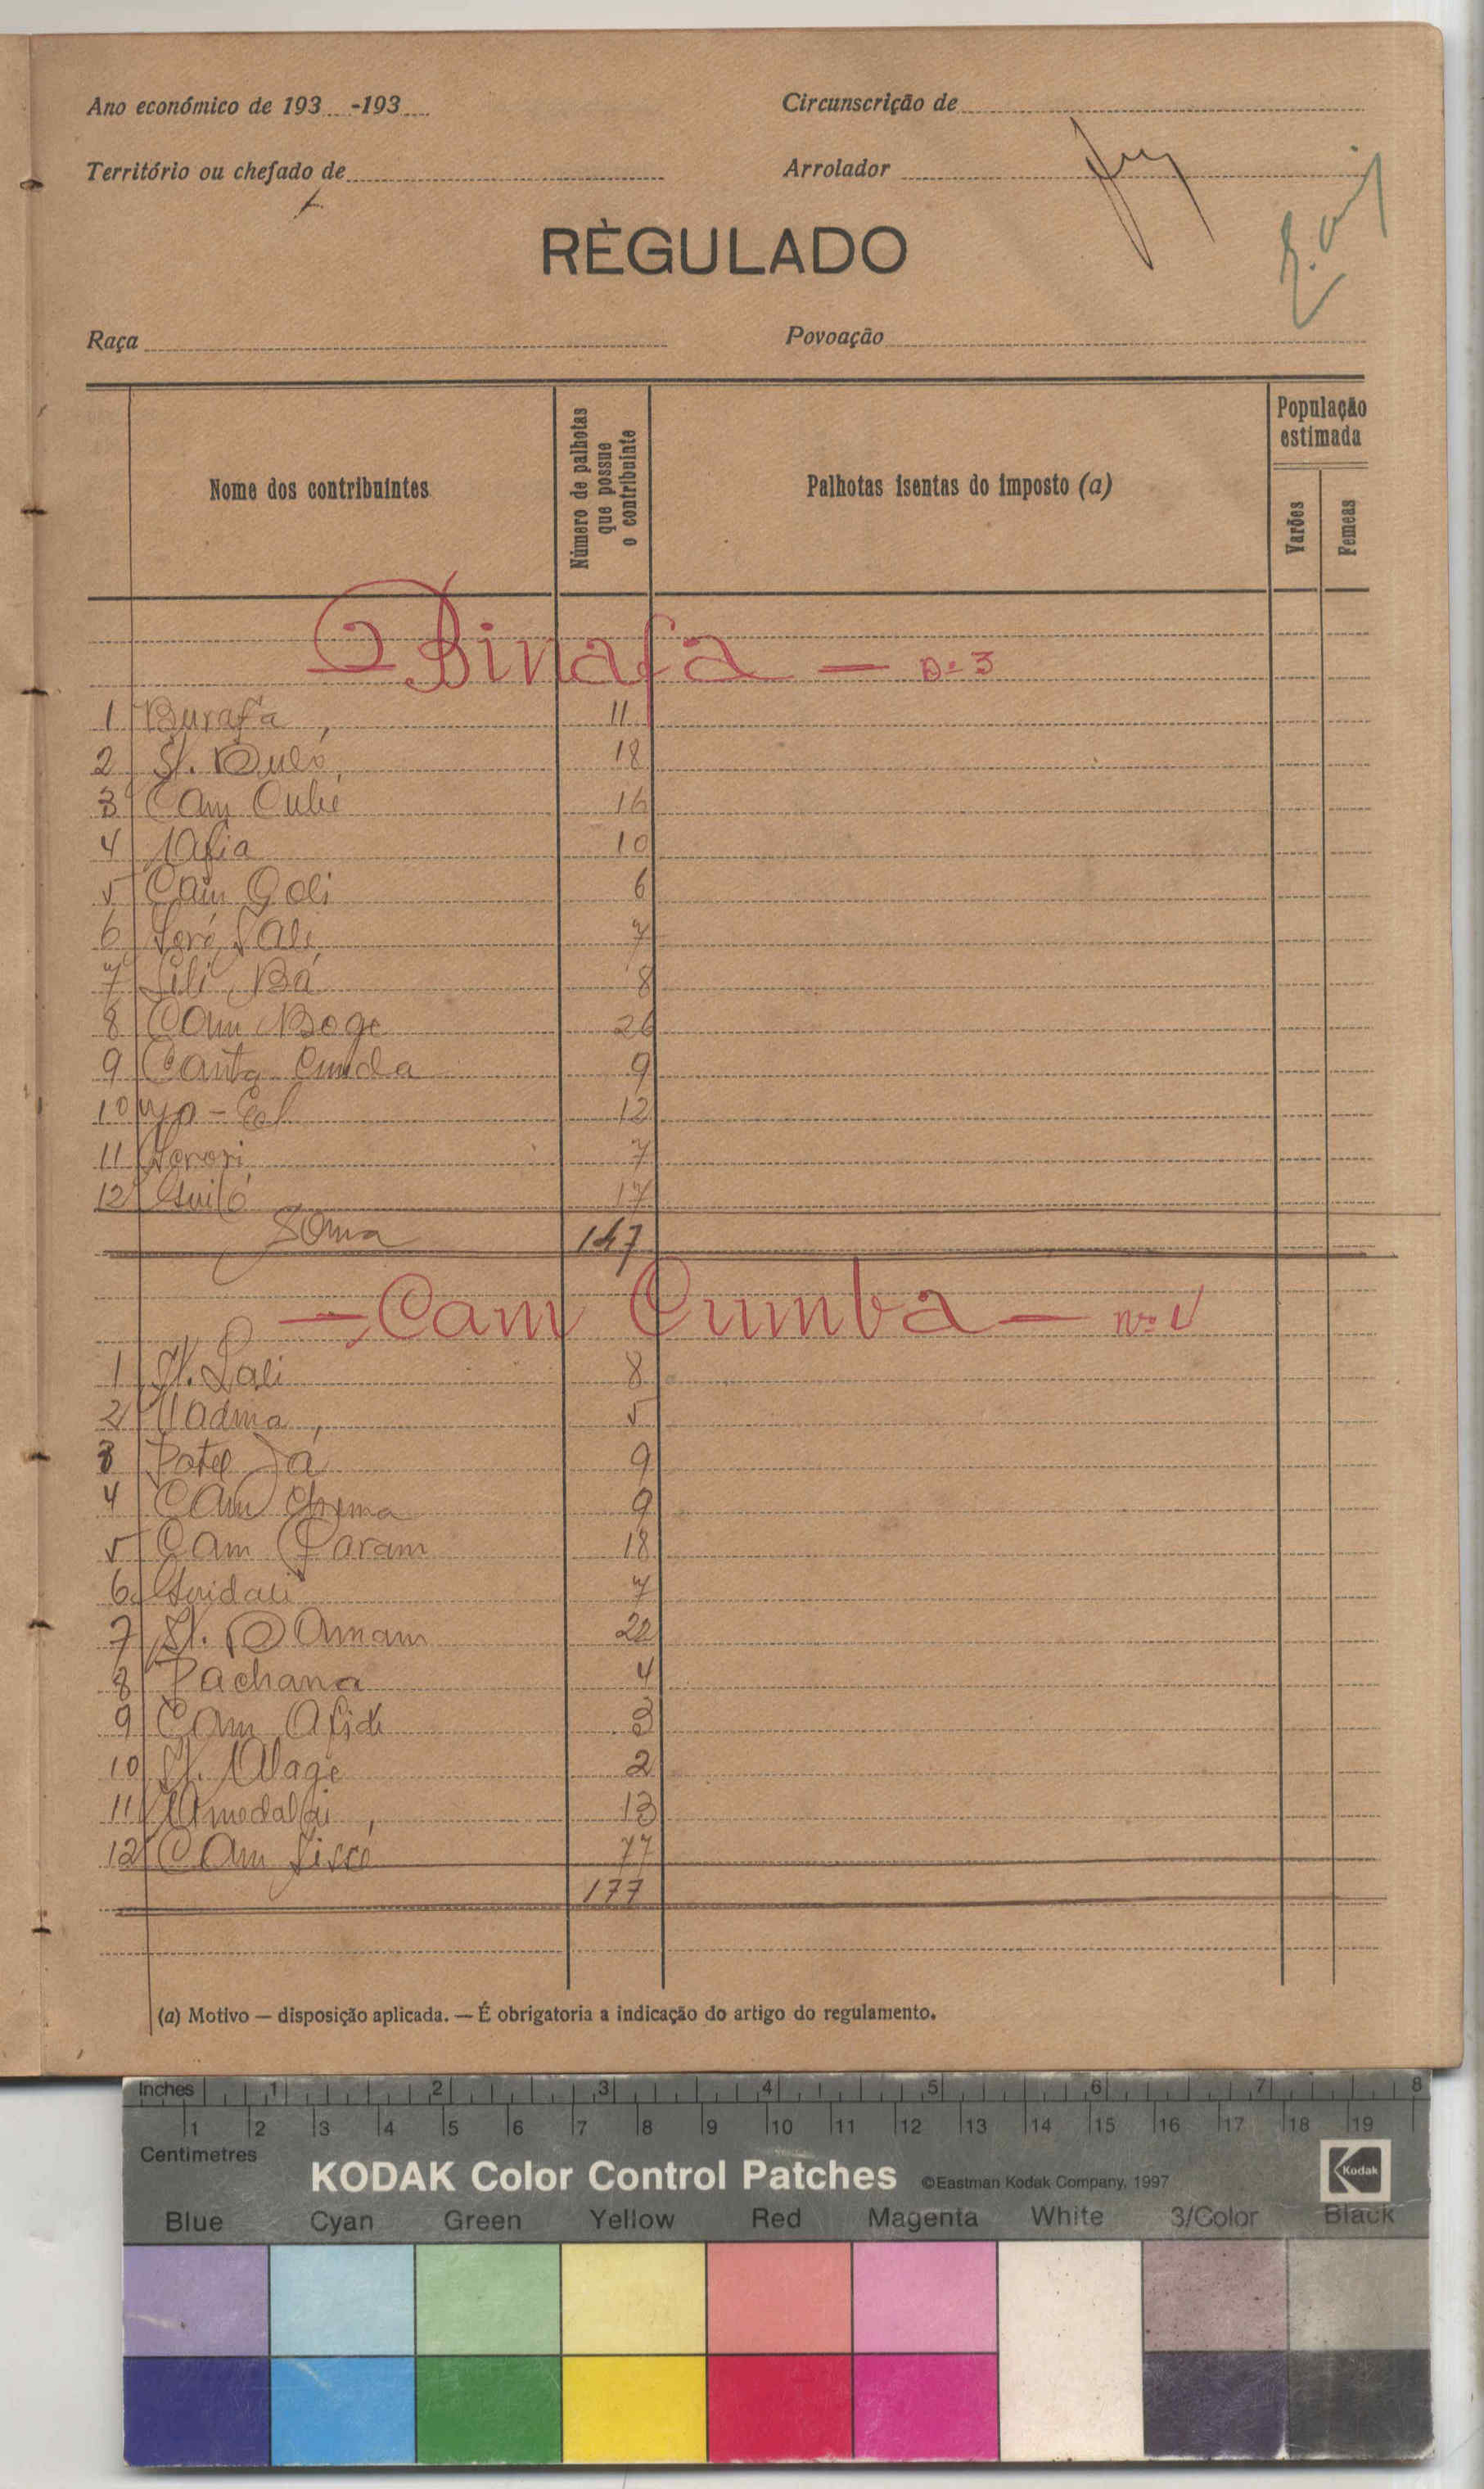 Ano económico de 193 -193
Circunscrição de
Território ou chefado de
Arrolador
RÈGULADO
Raça
Povoação
Nome dos contribuintes
Número de palhotas que possue o contribuinte
Palhotas isentas do imposto (a)
População estimada
Varões
Femeas
Binafa — nº 3
1 Burafa 11
2 St. Buló 18
3 Cam 16
4 Nafia 10
5 Cam Goli 6
6 7
7 Lili Bá 8
8 Cam Boge 26
9 Canta Cunda 9
10 12
11 7
12 Guiló 17
Soma 147
— Cam Cumba — nº
1 St. Lali 8
2 Uadma 5
3 Pate Já 9
4 Cam 9
5 Cam Param 18
6 Guidali 7
7 St. Amam 22
8 Pachana 4
9 Cam Afidi 3
10 St. Alage 2
11 Amedalai 13
12 Cam Sissé 77
177
(a) Motivo — disposição aplicada. — É obrigatoria a indicação do artigo do regulamento.
Inches 1 2 3 4 5 6 7 8
1 2 3 4 5 6 7 8 9 10 11 12 13 14 15 16 17 18 19
Centimetres
KODAK Color Control Patches ©Eastman Kodak Company, 1997 Kodak
Blue Cyan Green Yellow Red Magenta White 3/Color Black